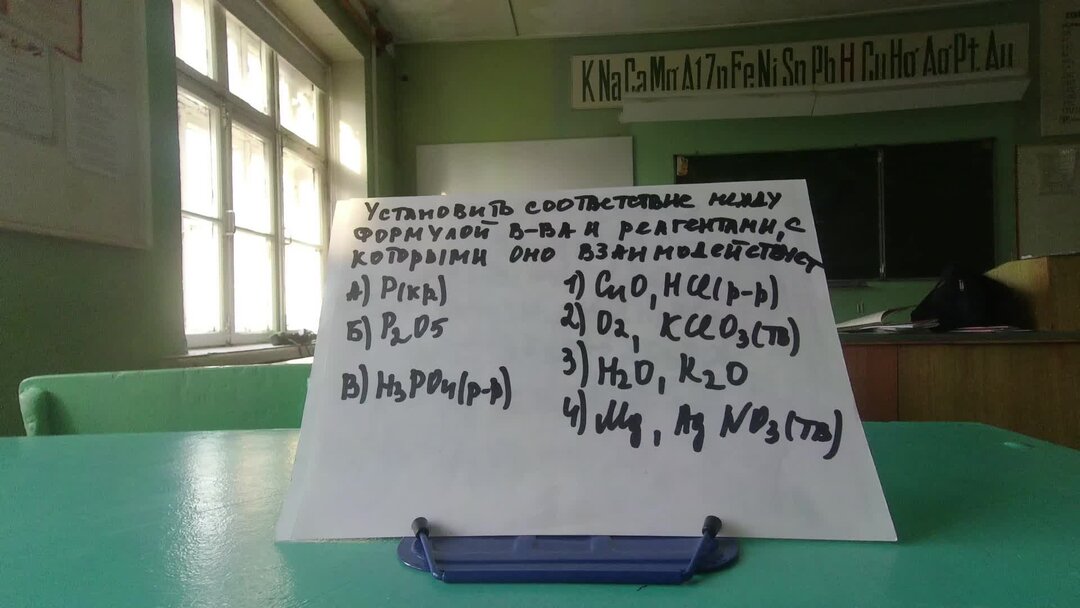 K Na Ca Mg Al Zn Fe Ni Sn Pb H Cu Hg Ag Pt Au
УСТАНОВИТЬ СООТВЕТСТВИЕ МЕЖДУ
ФОРМУЛОЙ В-ВА И РЕАГЕНТАМИ, С
КОТОРЫМИ ОНО ВЗАИМОДЕЙСТВУЕТ
А) P(кр)
Б) P2O5
В) H3PO4(р-р)
1) CuO, HCl(р-р)
2) O2, KClO3(тв)
3) H2O, K2O
4) Mg, AgNO3(тв)